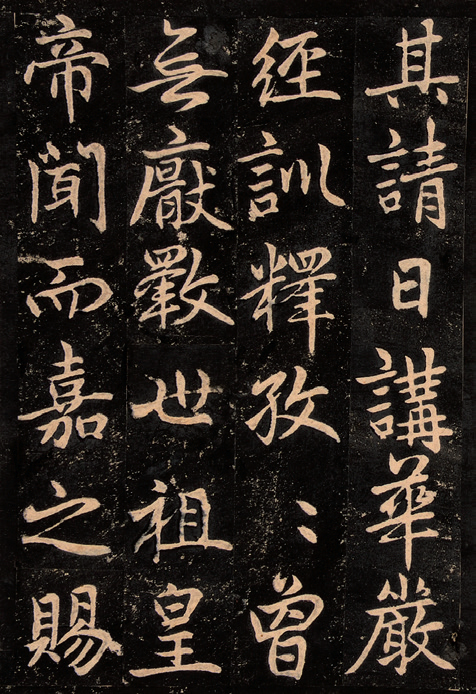 其請日講華嚴
經訓釋孜〻曾
無厭斁世祖皇
帝聞而嘉之賜